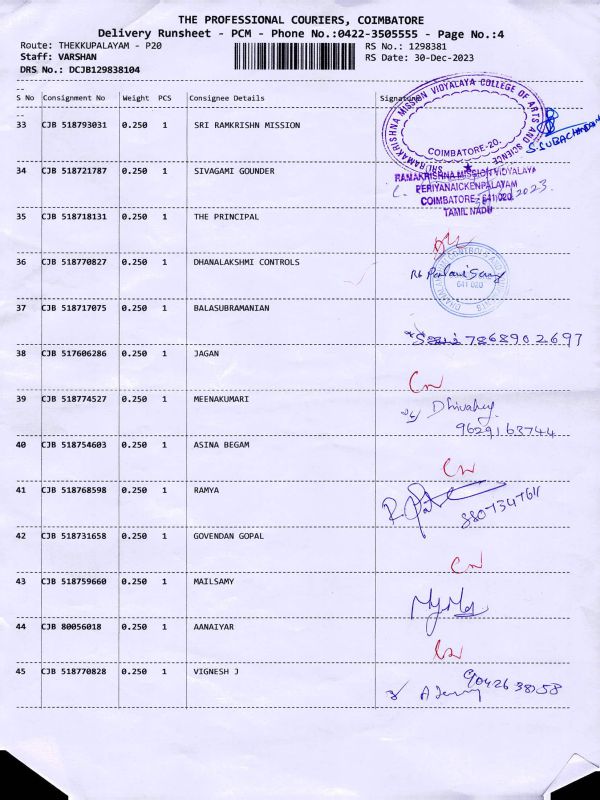 THE PROFESSIONAL COURIERS, COIMBATORE
Delivery Runsheet - PCM - Phone No.:0422-3505555 - Page No.:4
Route: THEKKUPALAYAM - P20
RS No.: 1298381
Staff: VARSHAN
RS Date: 30-Dec-2023
DRS No.: DCJB129838104
--
S No Consignment No Weight PCS Consignee Details Signature
--
33 CJB 518793031 0.250 1 SRI RAMKRISHN MISSION
SRI RAMAKRISHNA MISSION VIDYALAYA COLLEGE OF ARTS AND SCIENCE
COIMBATORE-20.
34 CJB 518721787 0.250 1 SIVAGAMI GOUNDER
RAMAKRISHNA MISSION VIDYALAYA
PERIYANAICKENPALAYAM
COIMBATORE - 641 020.
TAMIL NADU
35 CJB 518718131 0.250 1 THE PRINCIPAL
36 CJB 518770827 0.250 1 DHANALAKSHMI CONTROLS
641 020
37 CJB 518717075 0.250 1 BALASUBRAMANIAN
7868902697
38 CJB 517606286 0.250 1 JAGAN
39 CJB 518774527 0.250 1 MEENAKUMARI
9629163744
40 CJB 518754603 0.250 1 ASINA BEGAM
41 CJB 518768598 0.250 1 RAMYA
42 CJB 518731658 0.250 1 GOVENDAN GOPAL
43 CJB 518759660 0.250 1 MAILSAMY
44 CJB 80056018 0.250 1 AANAIYAR
45 CJB 518770828 0.250 1 VIGNESH J